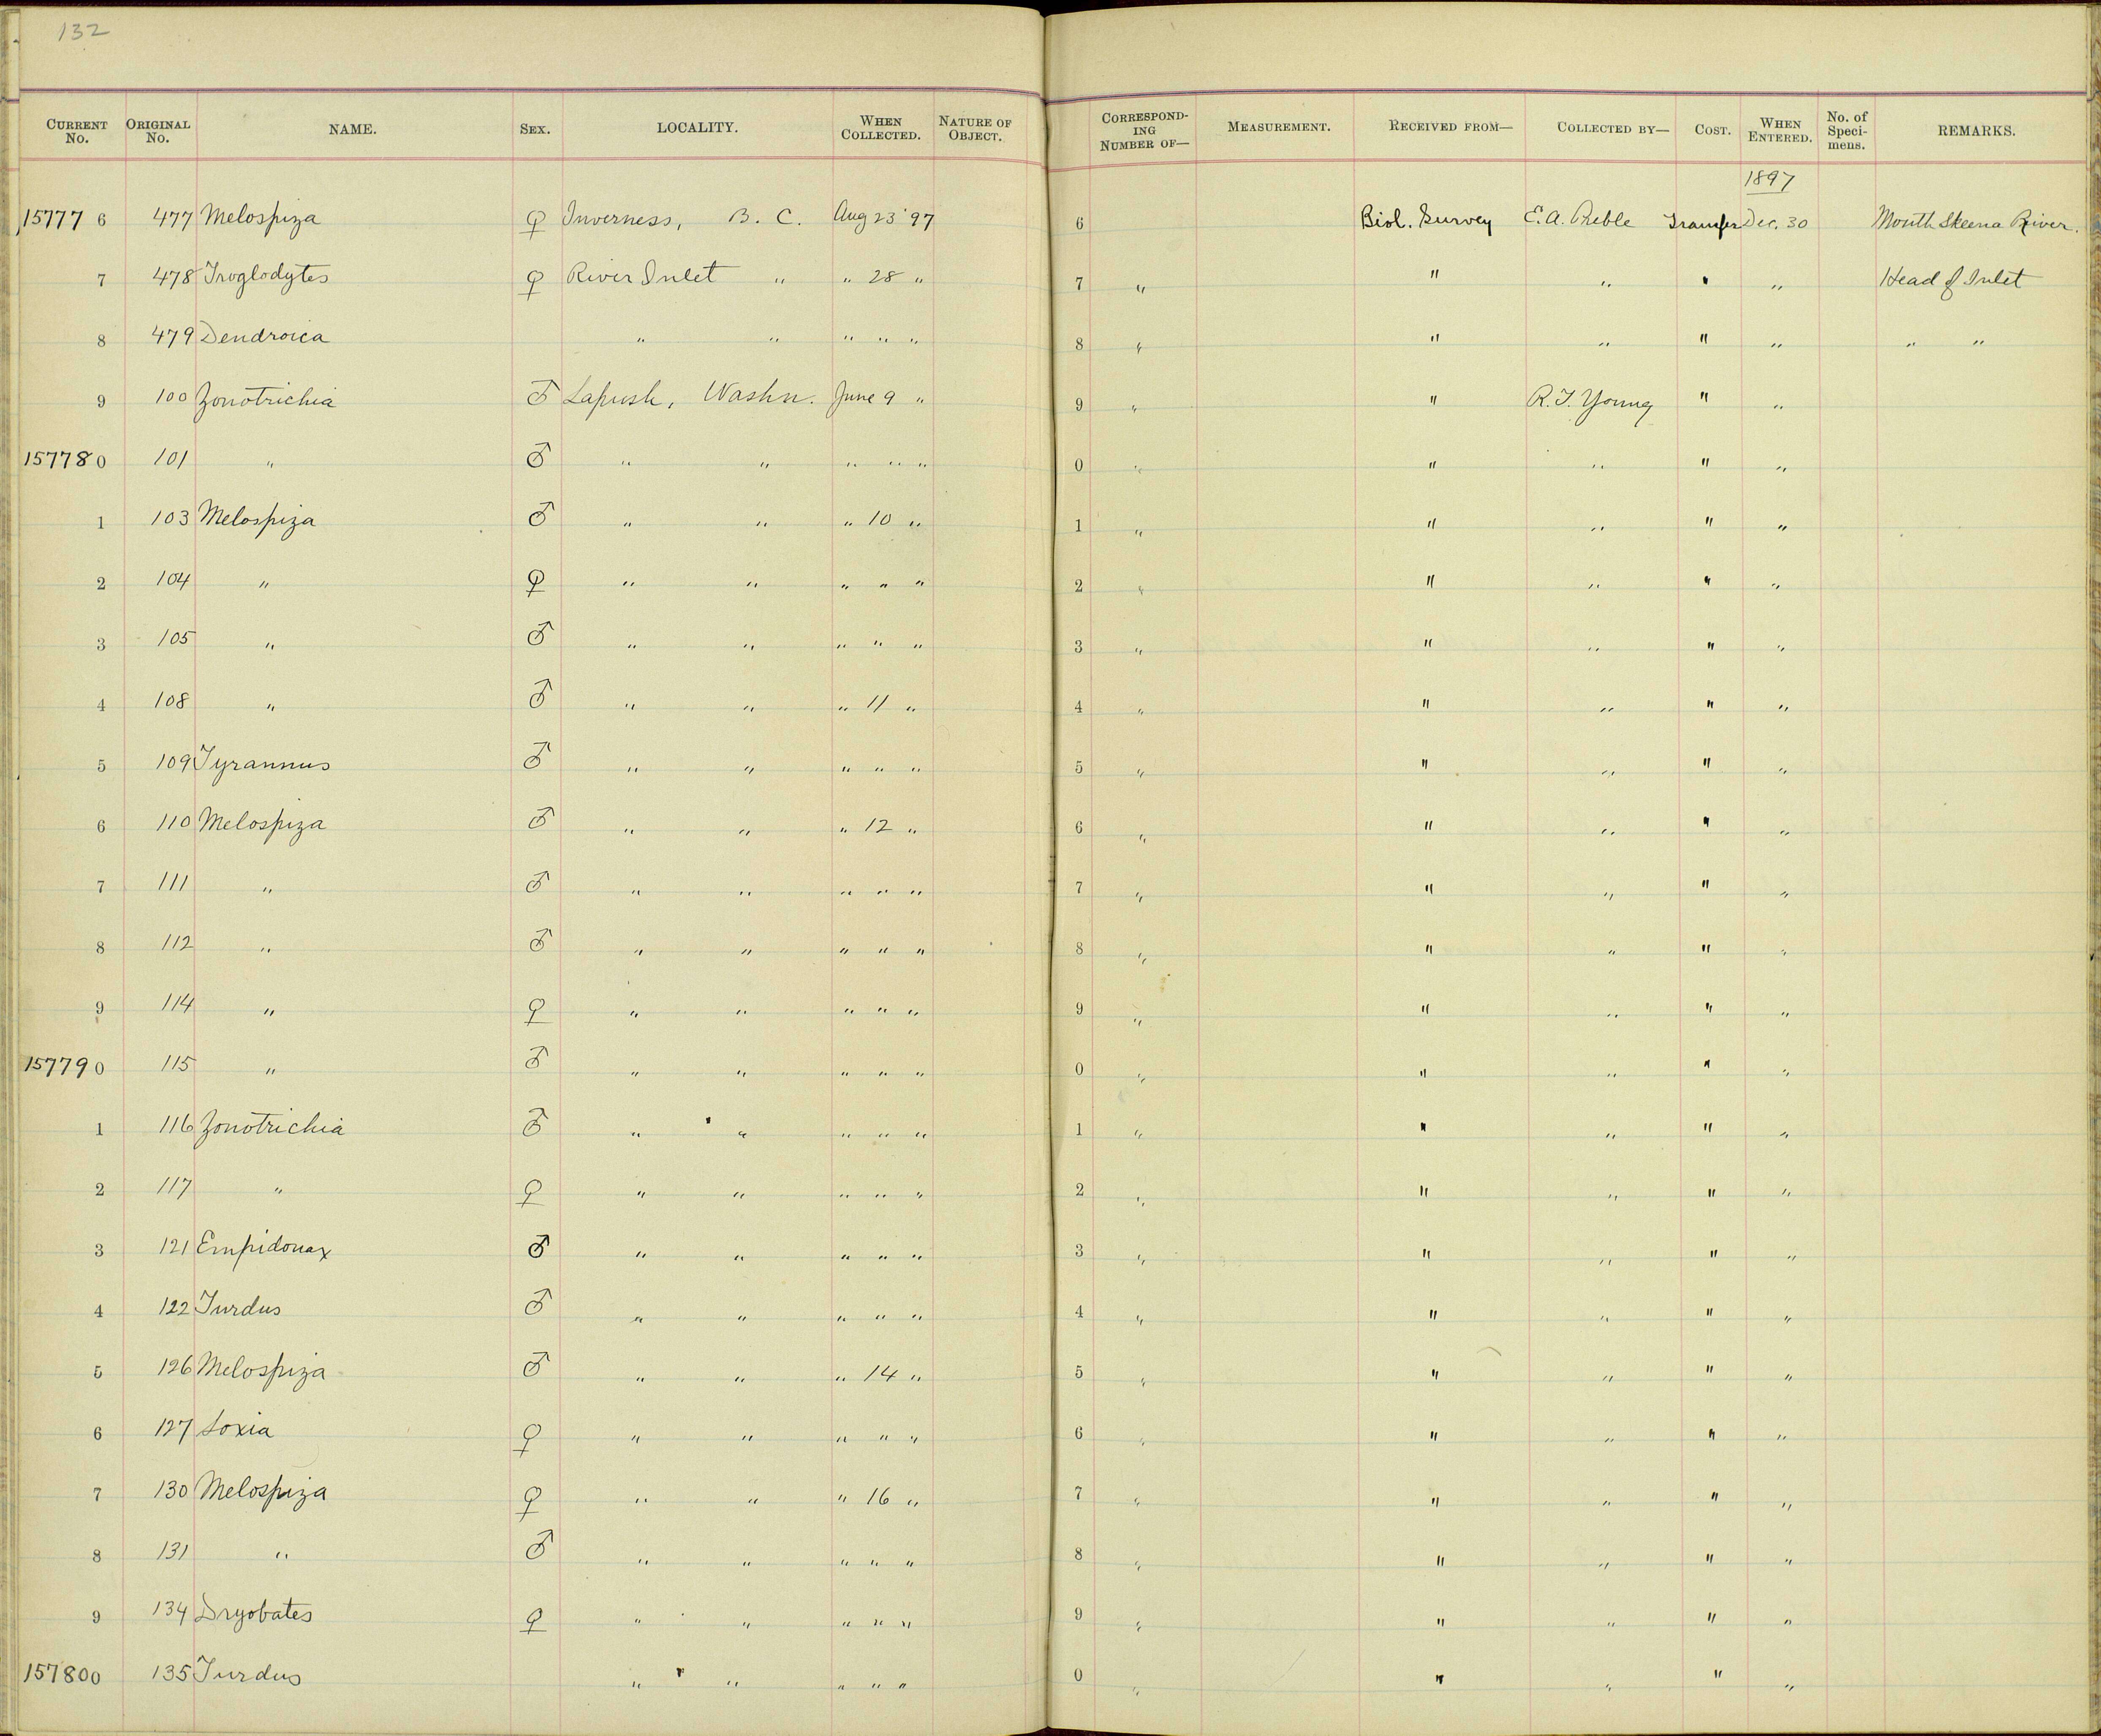 132
CURRENT No. ORIGINAL No. NAME. SEX. LOCALITY. WHEN COLLECTED. NATURE OF OBJECT. CORRESPONDING NUMBER OF— MEASUREMENT. RECEIVED FROM— COLLECTED BY— COST. WHEN ENTERED. No. of Specimens. REMARKS.
1897
157776 477 Melospiza ♀ Inverness, B. C. Aug 23 '97 6 Biol. Survey E. A. Preble Transfer Dec. 30 Mouth Skeena River.
7 478 Troglodytes ♀ River Inlet " " 28 " 7 " " " " " Head of Inlet
8 479 Dendroica " " " " " 8 " " " " " " "
9 100 Zonotrichia ♂ Lapush, Washn. June 9 " 9 " " R. T. Young " "
157780 101 " ♂ " " " " " 0 " " " " "
1 103 Melospiza ♂ " " " 10 " 1 " " " " "
2 104 " ♀ " " " " " 2 " " " " "
3 105 " ♂ " " " " " 3 " " " " "
4 108 " ♂ " " " 11 " 4 " " " " "
5 109 Tyrannus ♂ " " " " " 5 " " " " "
6 110 Melospiza ♂ " " " 12 " 6 " " " " "
7 111 " ♂ " " " " " 7 " " " " "
8 112 " ♂ " " " " " 8 " " " " "
9 114 " ♀ " " " " " 9 " " " " "
157790 115 " ♂ " " " " " 0 " " " " "
1 116 Zonotrichia ♂ " " " " " 1 " " " " "
2 117 " ♀ " " " " " 2 " " " " "
3 121 Empidonax ♂ " " " " " 3 " " " " "
4 122 Turdus ♂ " " " " " 4 " " " " "
5 126 Melospiza ♂ " " " 14 " 5 " " " " "
6 127 Loxia ♀ " " " " " 6 " " " " "
7 130 Melospiza ♀ " " " 16 " 7 " " " " "
8 131 " ♂ " " " " " 8 " " " " "
9 134 Dryobates ♀ " " " " " 9 " " " " "
157800 135 Turdus " " " " " 0 " " " " "